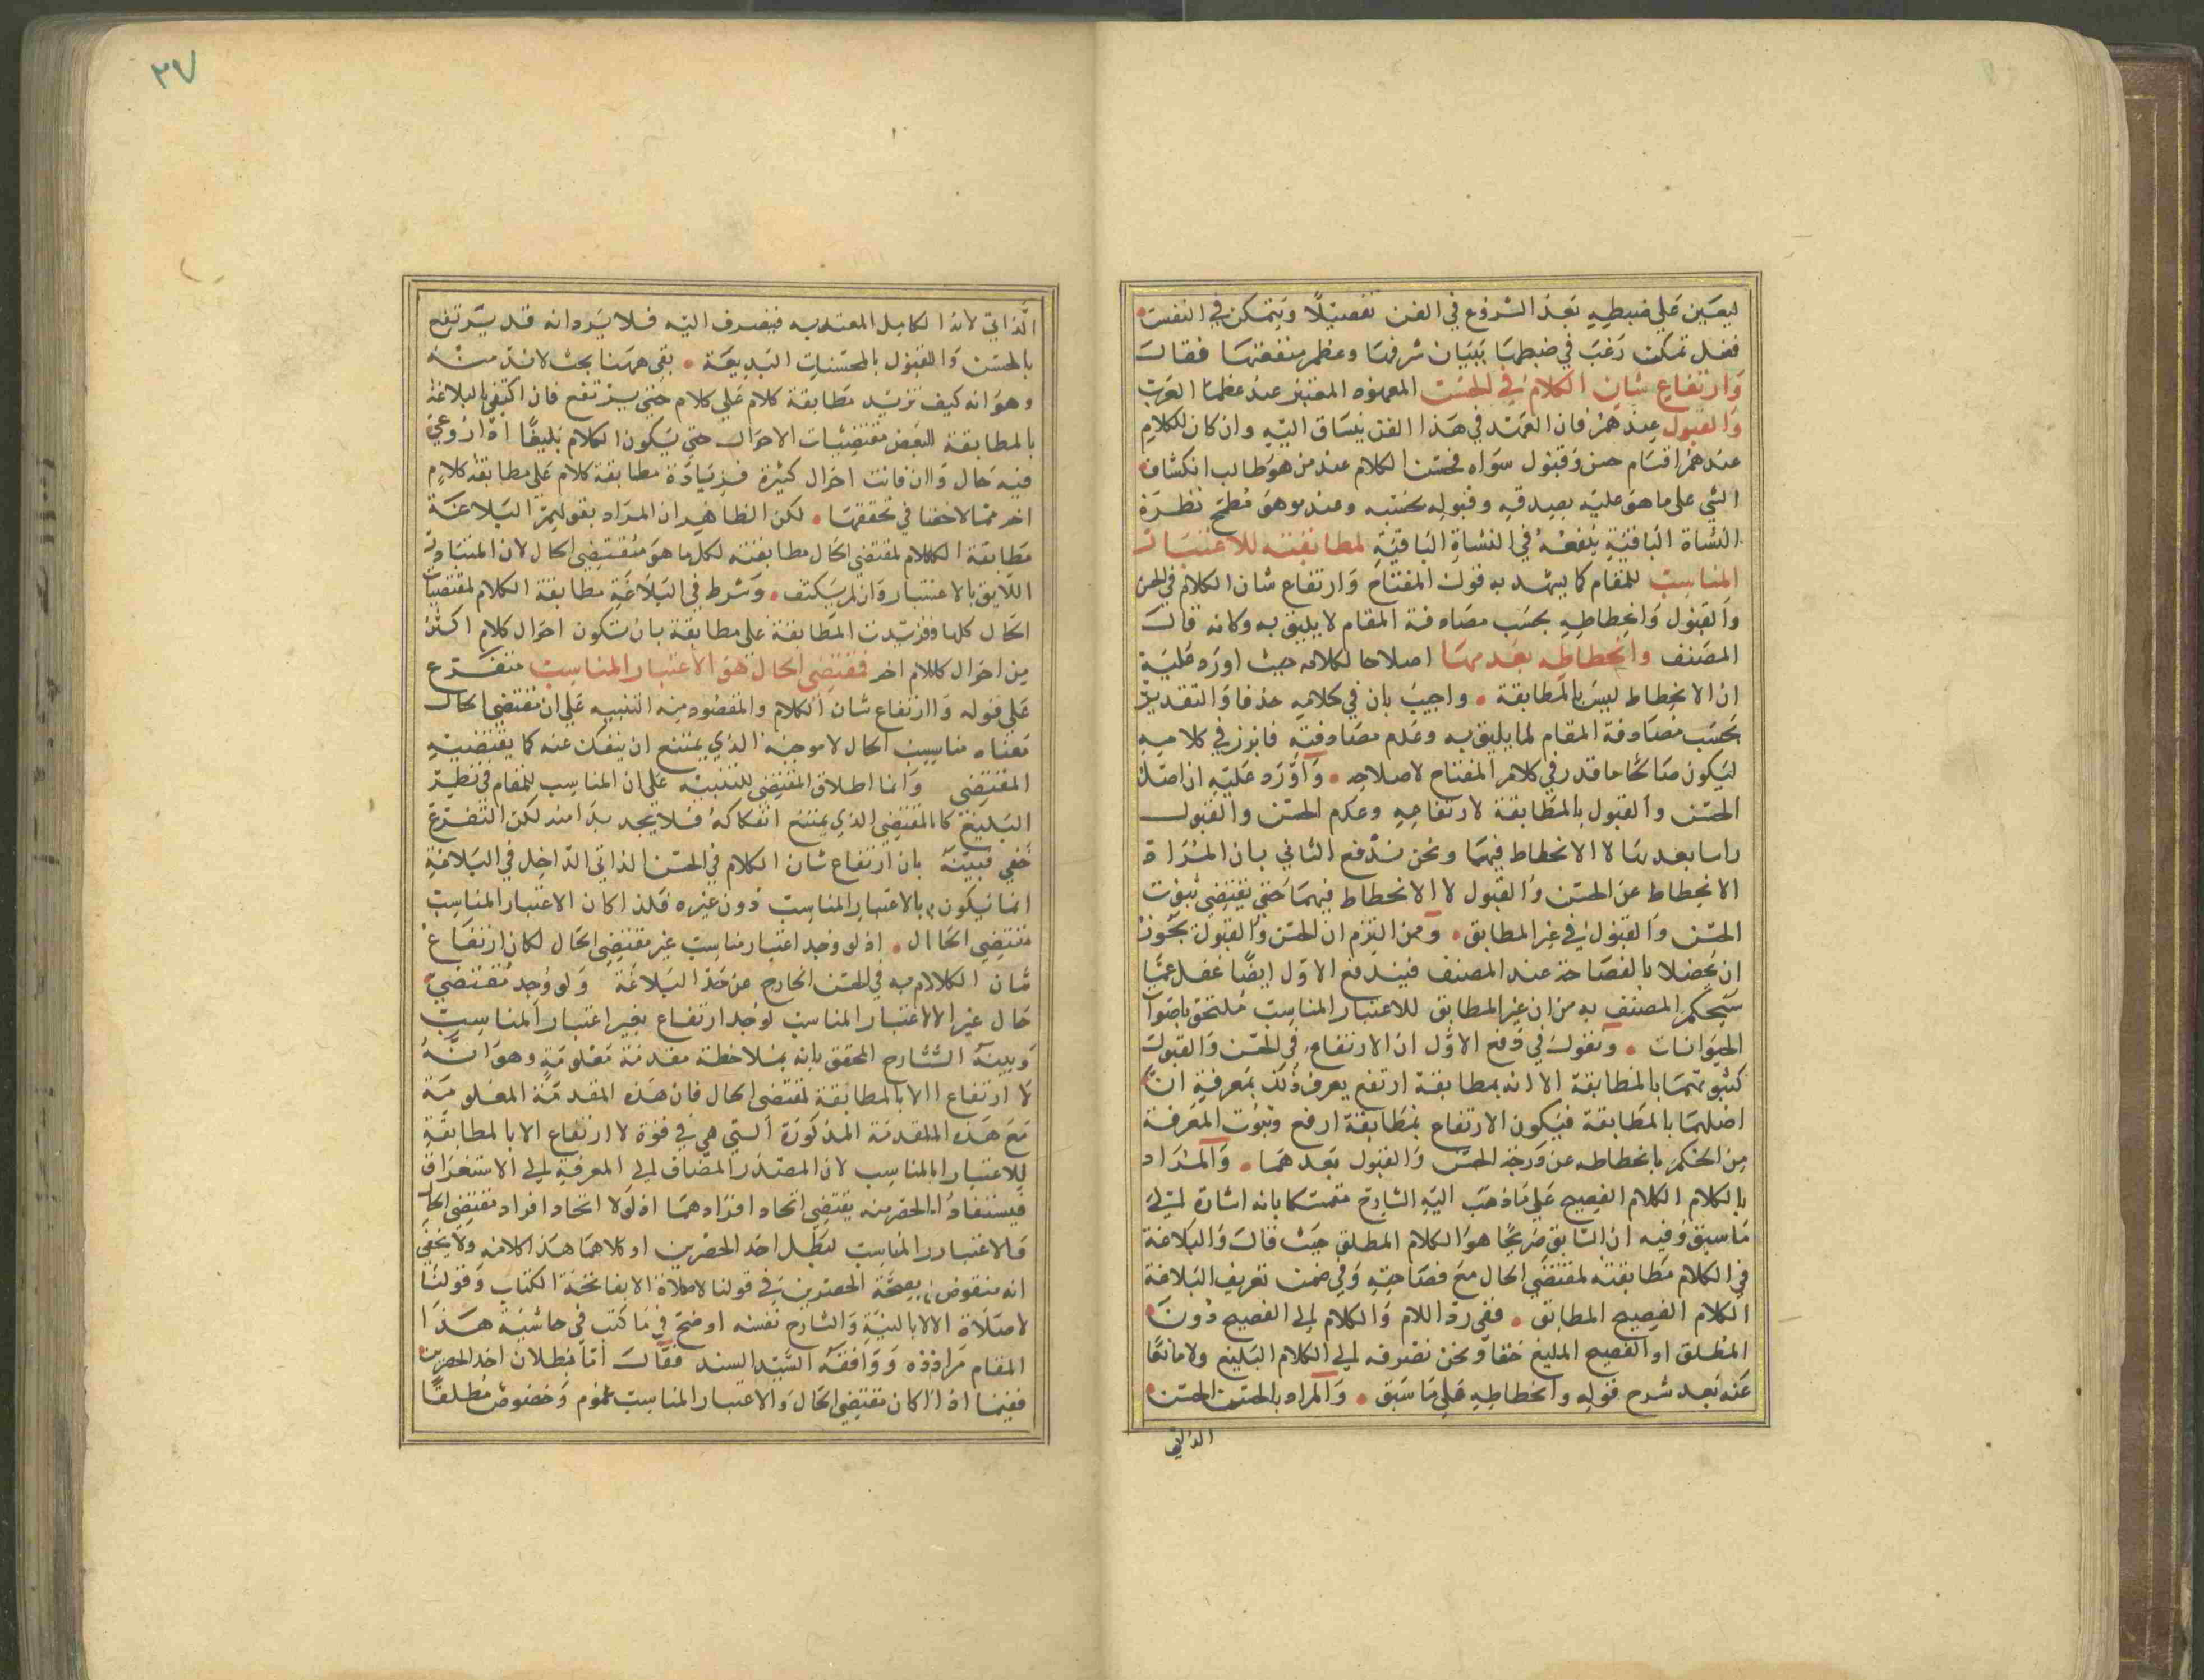 ليعين على ضبطه بعد الشروع في الفن تفصيلا ويتمكن في النفس
فضل تمكن رغب في ضبطها ببيان شرفها وعظم منفعتها فقال
وارتفاع شان الكلام في الحسن المعهود المعتبر عند عظماء العرب
والقبول عندهم فان العهد في هذا الفن ينساق اليه وان كان للكلام
عندهم اقسام حسن وقبول سواه فحسن الكلام عند من هو طالب انكشاف
الشي على ما هو عليه بصدقه وقبوله بحسبه وعند من هو مطمح نظره
النشاة الباقية بنفعه في النشاة الباقية لمطابقته للاعتبار
المناسب للمقام كما يشهد به قول المفتاح وارتفاع شان الكلام في الحسن
والقبول وانحطاطه بحسب مصادفة المقام لا يليق به وكانه قال
المصنف وانحطاطه بعدمها اصلاحا لكلامه حيث اورد عليه
ان الانحطاط ليس بالمطابقة واجيب بان في كلامه حذفا والتقدير
بحسب مصادفة المقام لما يليق به وعدم مصادفته فابرز في كلامه
ليكون صالحا ما قدر في كلام المفتاح لاصلاحه واورد عليه ان اصل
الحسن والقبول بالمطابقة لارتفاعه وعدم الحسن والقبول
راسا بعدمها لا الانحطاط فيهما ونحن ندفع الثاني بان المراد
الانحطاط عن الحسن والقبول لا الانحطاط فيهما حتى يقتضي ثبوت
الحسن والقبول في غير المطابق ومن التزم ان الحسن والقبول يجوز
ان يحصلا بالفصاحة عند المصنف فيندفع الاول ايضا غفل عما
سيحكم المصنف به من ان غير المطابق للاعتبار المناسب ملتحق باصوات
الحيوانات ونقول في دفع الاول ان الارتفاع في الحسن والقبول
كثبوتهما بالمطابقة الا انه بمطابقة ارتفع يعرف ذلك بمعرفة ان
اصلهما بالمطابقة فيكون الارتفاع بمطابقة ارفع وثبوت المعرفة
من الحكم بانحطاطه عن درجة الحسن والقبول بعدهما والمراد
بالكلام الكلام الفصيح على ما ذهب اليه الشارح متمسكا بانه اشارة الى
ما سبق وفيه ان السابق صريحا هو الكلام المطلق حيث قال والبلاغة
في الكلام مطابقته لمقتضى الحال مع فصاحته وفي ضمن تعريف البلاغة
الكلام الفصيح المطابق ففي رد اللام والكلام الى الفصيح دون
المطلق او الفصيح البليغ خفا ونحن نصرفه الى الكلام البليغ ولا مانعا
عنه بعد شرح قوله وانحطاطه على ما سبق والمراد بالحسن الحسن
الذاتي
٣٧
الذاتي لانه الكامل المعتد به فينصرف اليه فلا يرد انه قد يرتفع
بالحسن والقبول بالمحسنات البديعة بقي ههنا بحث لابد منه
وهو انه كيف تزيد مطابقة كلام على كلام حتى يرتفع فان اكتفي بالبلاغة
بالمطابقة لبعض مقتضيات الاحوال حتى يكون الكلام بليغا اذا روعي
فيه حال وان فاتت احوال كثيرة فزيادة مطابقة كلام على مطابقة كلام
اخر مما لا خفا في تحققها لكن الظاهر ان المراد بقولهم البلاغة
مطابقة الكلام لمقتضى الحال مطابقته لكل ما هو مقتضى الحال لان المتبادر
اللايق بالاعتبار وان لم يكتف وشرط في البلاغة مطابقة الكلام لمقتضيات
الحال كلها فزيدت المطابقة على مطابقة بان تكون احوال كلام اكثر
من احوال كلام اخر فمقتضى الحال هو الاعتبار المناسب متفرع
على قوله وارتفاع شان الكلام والمقصود منه التنبيه على ان مقتضى الحال
معناه مناسب الحال لا موجبه الذي يمتنع ان ينفك عنه كما يقتضيه
المقتضى وانما اطلاق المقتضى للتنبيه على ان المناسب للمقام في نظر
البليغ كالمقتضى الذي يمتنع انفكاكه فلا يجد بدا منه لكن التفرع
خفي فبينه بان ارتفاع شان الكلام في الحسن الذاتي الداخل في البلاغة
انما يكون بالاعتبار المناسب دون غيره فلذا كان الاعتبار المناسب
مقتضى الحال اذ لو وجد اعتبار مناسب غير مقتضى الحال لكان ارتفاع
شان الكلام به في الحسن الخارج عن حد البلاغة ولو وجد مقتضى
حال غير الاعتبار المناسب لوجد ارتفاع بغير اعتبار المناسب
وبينه الشارح المحقق بانه بملاحظة مقدمة معلومة وهو انه
لا ارتفاع الا بالمطابقة لمقتضى الحال فان هذه المقدمة المعلومة
مع هذه المقدمة المذكورة التي هي في قوة لا ارتفاع الا بالمطابقة
للاعتبار المناسب لان المصدر المضاف الى المعرفة الى الاستغراق
فيستفاد الحصر منه يقتضي اتحاد افرادهما اذ لولا اتحاد افراد مقتضى الحال
والاعتبار المناسب لبطل احد الحصرين او كلاهما هذا كلامه ولا يخفى
انه منقوض بصحة الحصرين في قولنا لا صلاة الا بفاتحة الكتاب وقولنا
لا صلاة الا بالنية والشارح نفسه اوضح في ما كتب في حاشية هذا
المقام مراده ووافقه السيد السند فقال اما بطلان احد الحصرين
ففيما اذا كان مقتضى الحال والاعتبار المناسب عموم وخصوص مطلقا